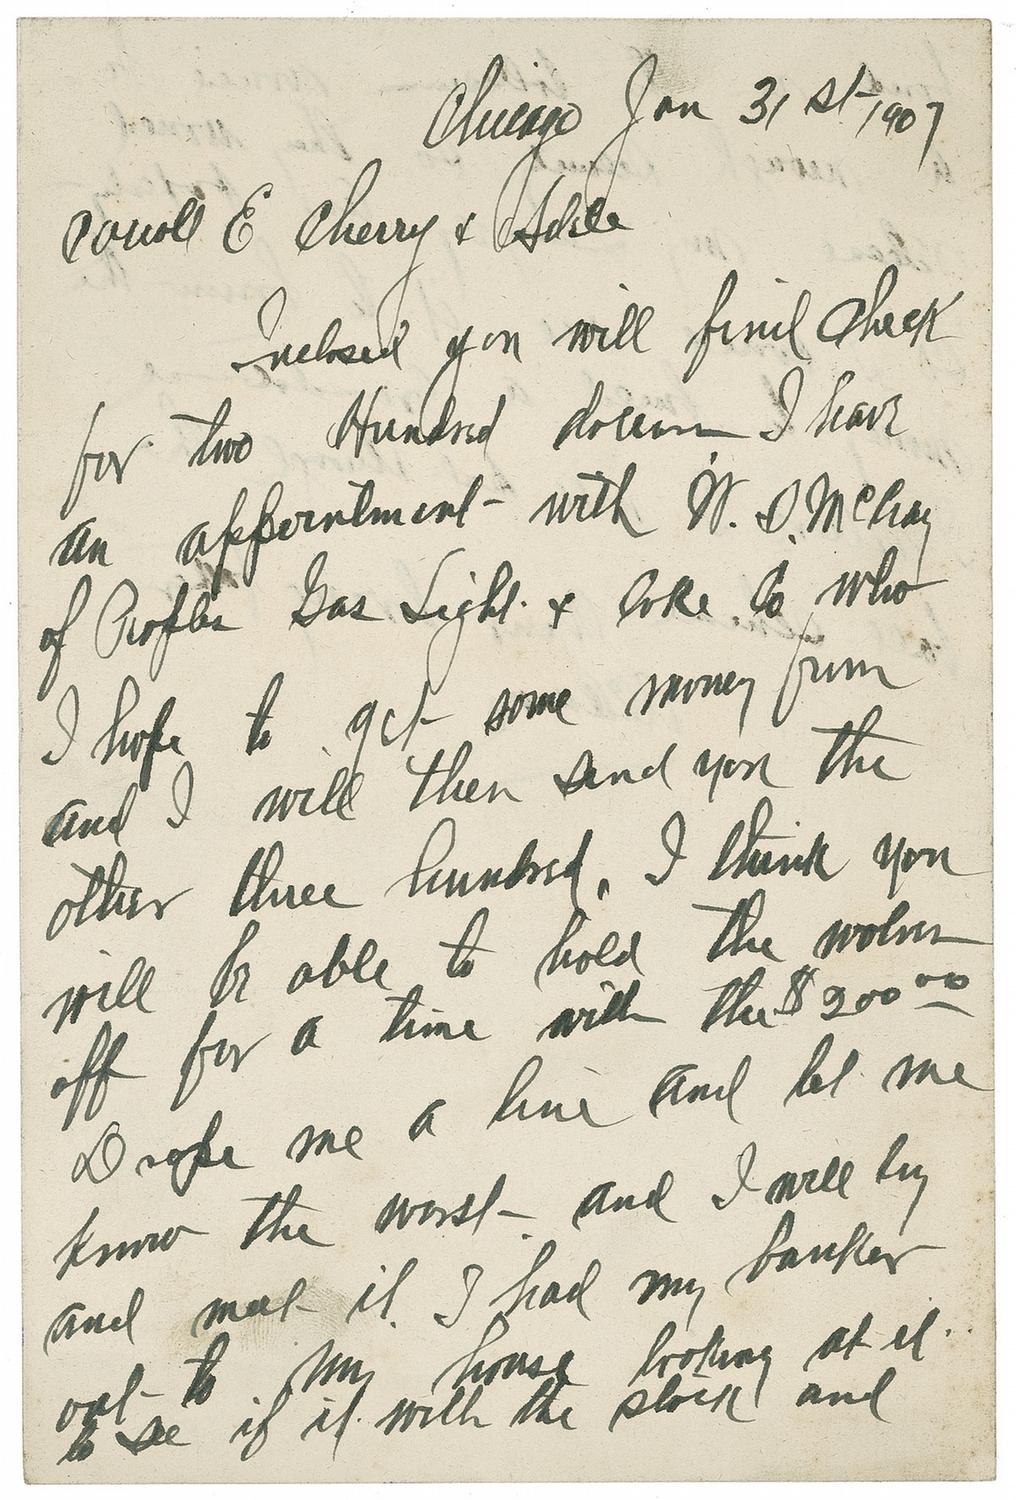 Chicago Jan 31st 1907
Carroll E Cherry &
Inclosed you will find Check
for two Hundred I have
an appointment with W. S. McCray
of Peoples Gas Light & Coke Co who
I hope to get some money from
and I will then send you the
other three hundred. I think you
will be able to hold the wolves
off for a time with the $200 00
Drope me a line and let me
know the worst and I will try
and meet it I had my banker
out to my house looking at it
to see if it with the stock and